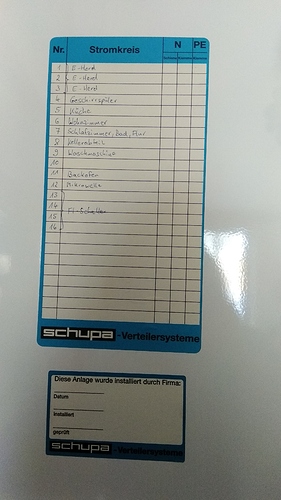 Nr. Stromkreis N PE
1 E-Herd
2 E-Herd
3 E-Herd
4 Geschirrspüler
5 Küche
6 Wohnzimmer
7 Schlafzimmer, Bad, Flur
8 Kellerabteil
9 Waschmaschine
10
11 Backofen
12 Mikrowelle
13
14
15 FI-Schalter
16
schupa -Verteilersysteme
Diese Anlage wurde installiert durch Firma:
Datum
installiert
geprüft
schupa -Verteilersysteme